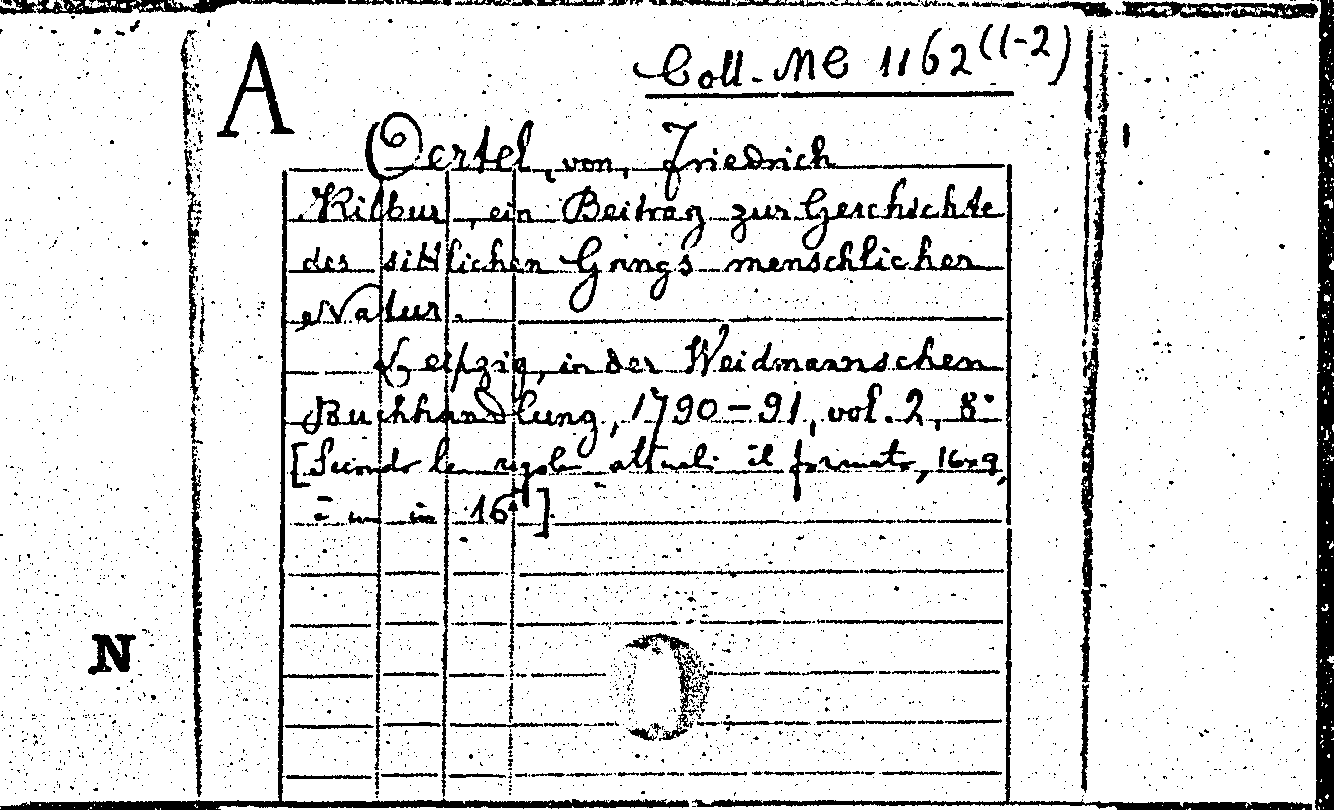 A
Coll. MC 1162 (1-2)
Oertel, von, Friedrich
Kilbur, ein Beitrag zur Geschichte
des sittlichen Gangs menschlicher
Natur.
Leipzig, in der Weidmannschen
Buchhandlung, 1790-91, vol. 2, 8°
[Secondo le regole attuali il formato, 16x9,
è un in 16°]
N